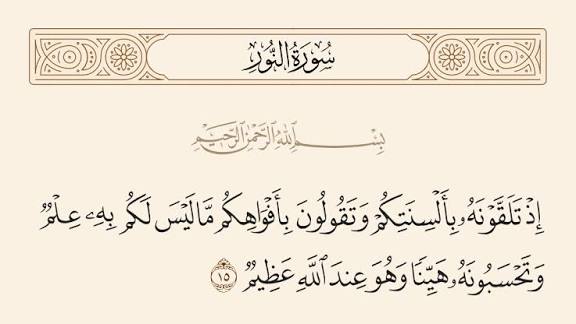 سُورَةُ النُّورِ
بِسْمِ اللَّهِ الرَّحْمَٰنِ الرَّحِيمِ
إِذْ تَلَقَّوْنَهُۥ بِأَلْسِنَتِكُمْ وَتَقُولُونَ بِأَفْوَاهِكُم مَّا لَيْسَ لَكُم بِهِۦ عِلْمٌ
وَتَحْسَبُونَهُۥ هَيِّنًا وَهُوَ عِندَ ٱللَّهِ عَظِيمٌ ١٥